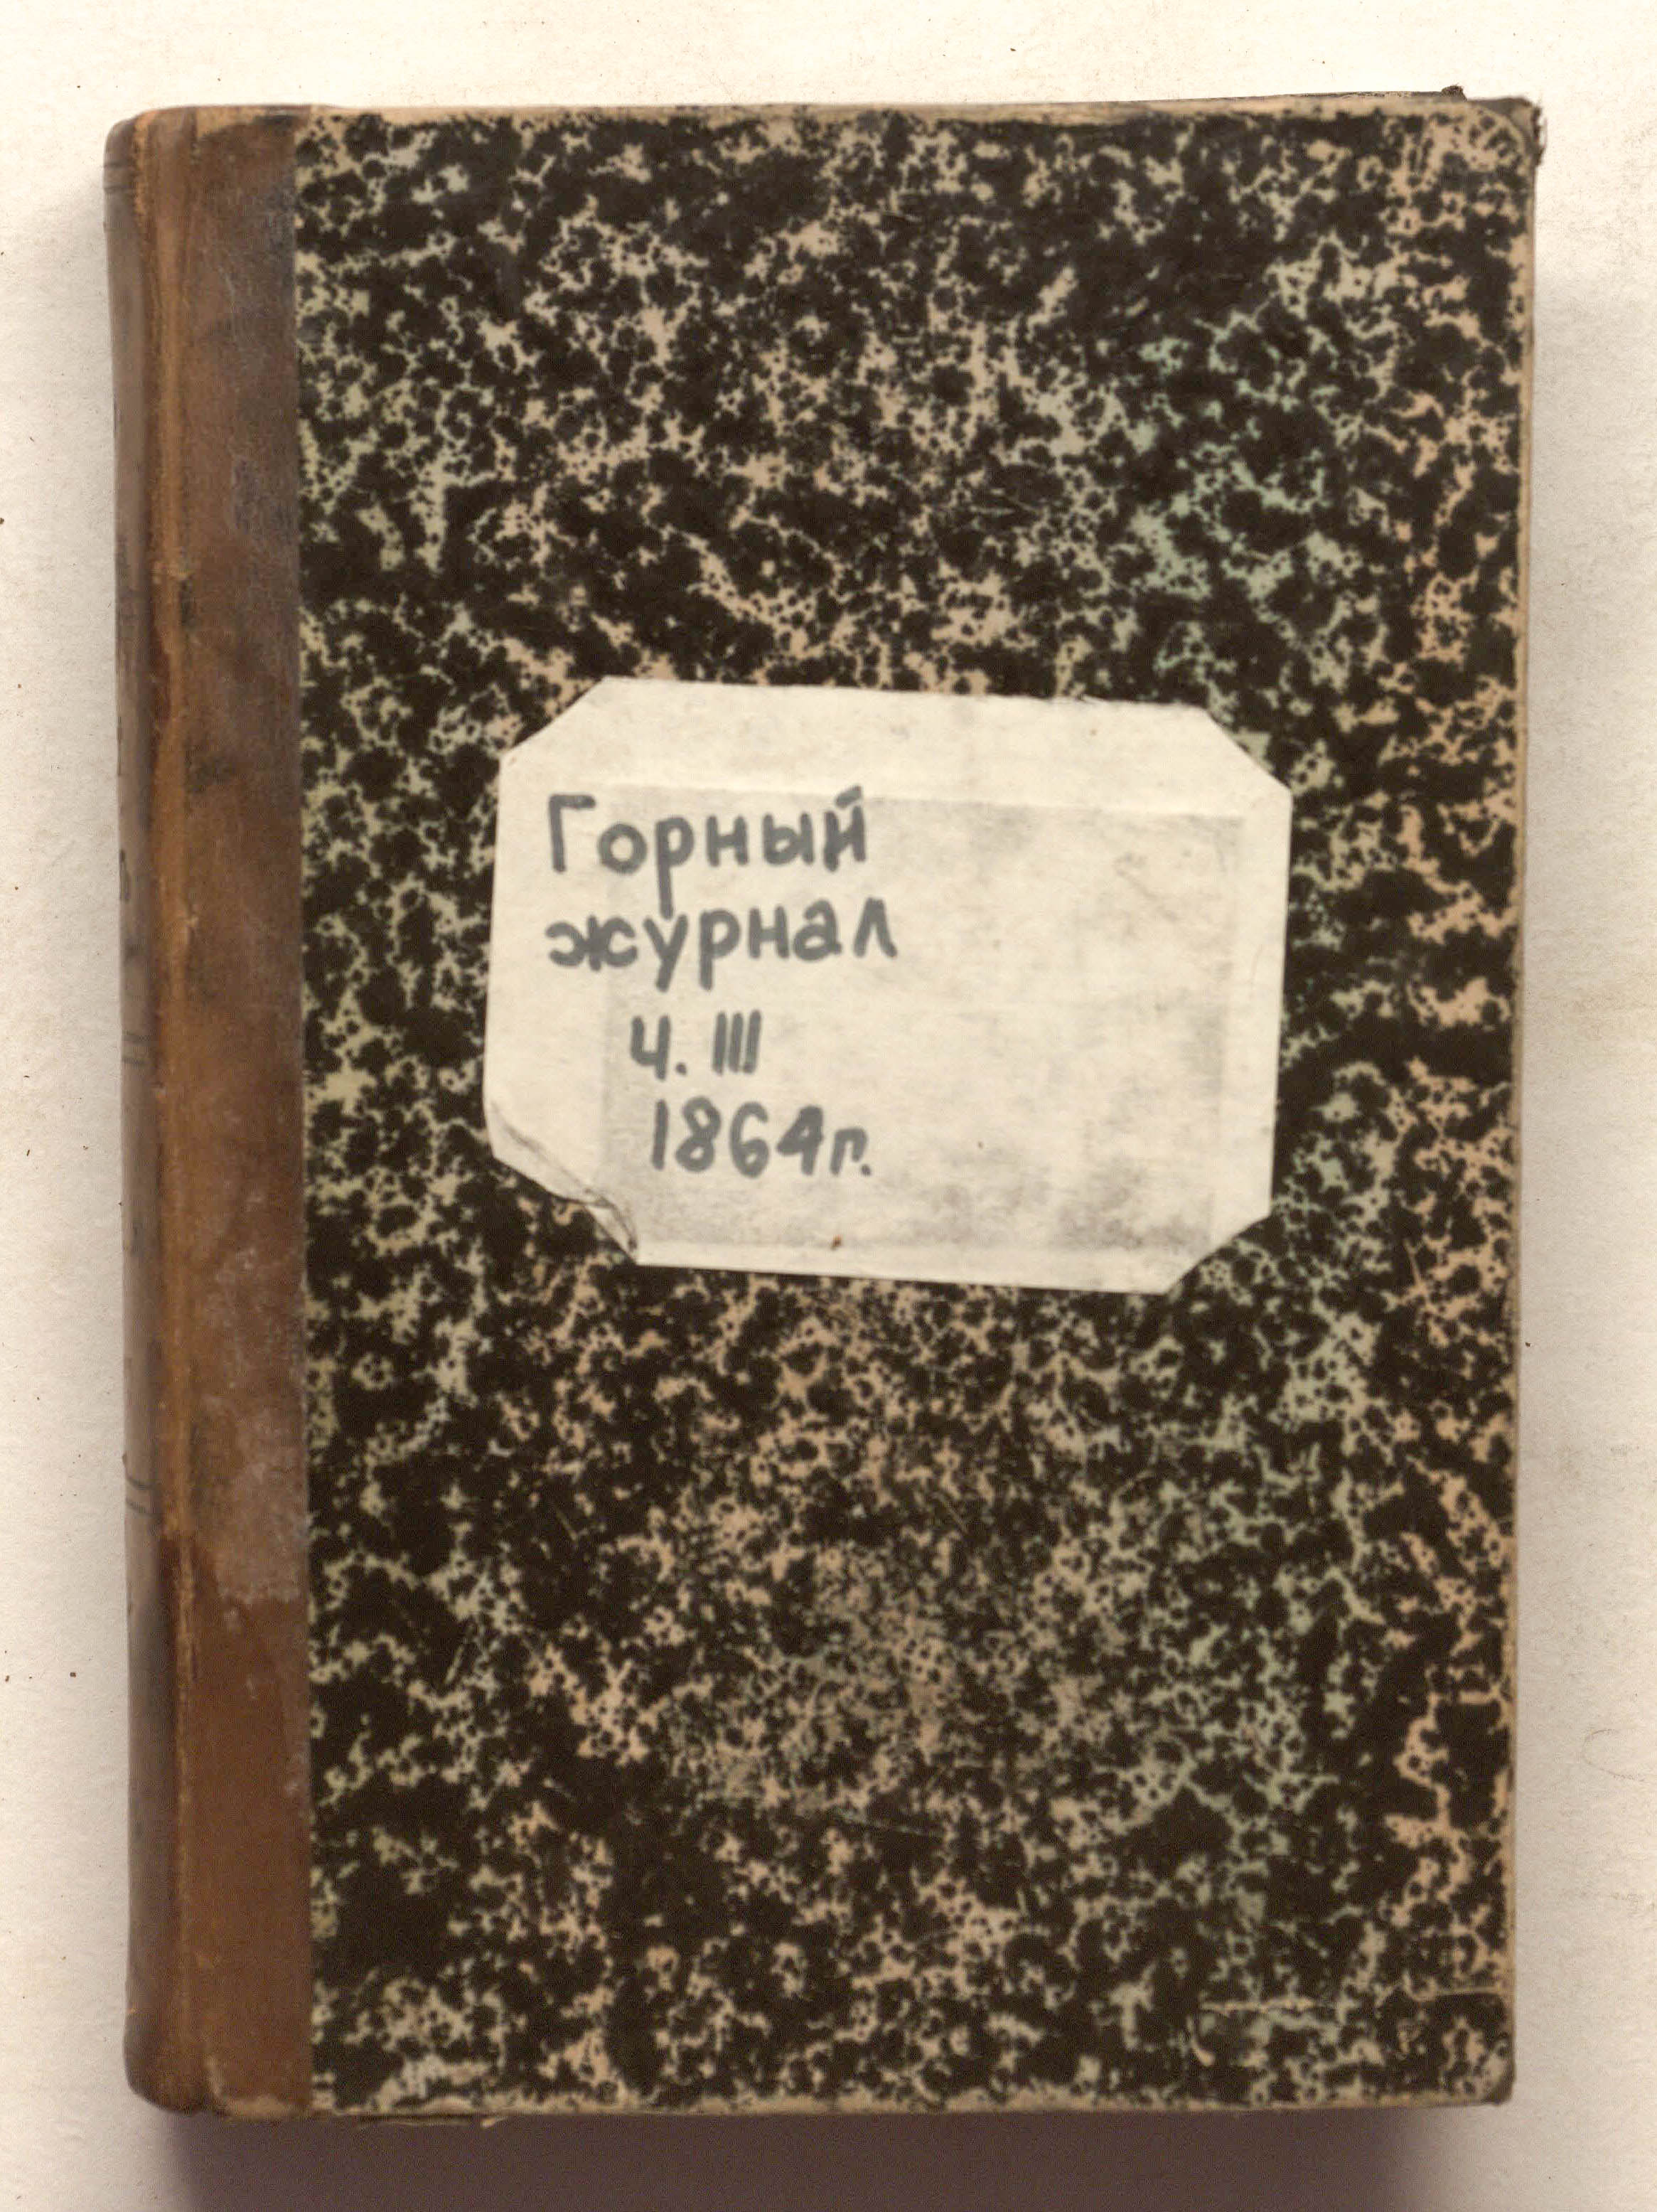 Горный
журнал
ч. III
1864г.